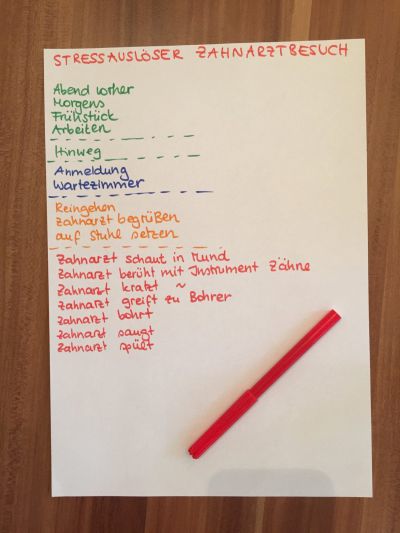 STRESSAUSLÖSER ZAHNARZTBESUCH
Abend vorher
Morgens
Frühstück
Arbeiten
Hinweg
Anmeldung
Wartezimmer
Reingehen
Zahnarzt begrüßen
auf Stuhl setzen
Zahnarzt schaut in Mund
Zahnarzt berüht mit Instrument Zähne
Zahnarzt kratzt ~
Zahnarzt greift zu Bohrer
Zahnarzt bohrt
Zahnarzt saugt
Zahnarzt spült